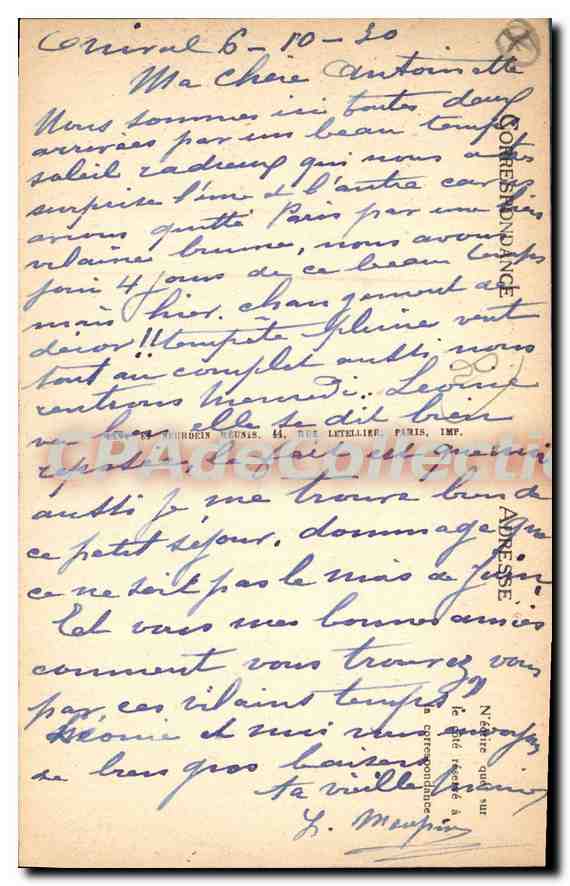 6-10-30
Ma chère Antoinette
Nous sommes ici toutes deux
arrivées par un beau temps
soleil radieux qui nous a
surprise l'une et l'autre car
avions quitté Paris par une
vilaine brume, nous avons
joui 4 jours de ce beau temps
mais hier. changement de
décor!! tempête pluie vent
tout au complet aussi nous
rentrons Mercredi. Léonie
va bien elle se dit bien
reposée, le fait est que moi
aussi je me trouve bien de
ce petit séjour. dommage que
ce ne soit pas le mois de Juin
Et vous mes bonnes amies
comment vous trouvez vous
par ces vilains temps
Léonie et moi vous envoyons
de bien gros baisers
ta vieille
L. Maupin
CORRESPONDANCE
ADRESSE
NEURDEIN RÉUNIS, 44, RUE LETELLIER, PARIS, IMP.
N'écrire que sur
le côté réservé à
la correspondance
CPAdeCollection